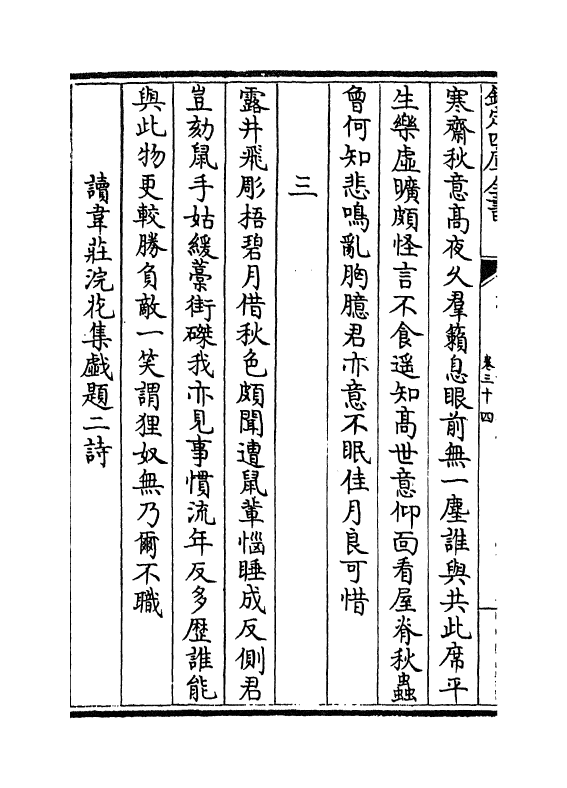 欽定四庫全書
卷三十四
寒齋秋意髙夜久羣籟息眼前無一塵誰與共此席平
生樂虛曠頗怪言不食遥知髙世意仰面看屋脊秋蟲
曾何知悲鳴亂胸臆君亦意不眠佳月良可惜
三
露井飛彫梧碧月借秋色頗聞遭鼠輩惱睡成反側君
豈劾鼠手姑緩藁街磔我亦見事慣流年反多歴誰能
與此物更較勝負敵一笑謂狸奴無乃爾不職
讀韋莊浣花集戲題二詩